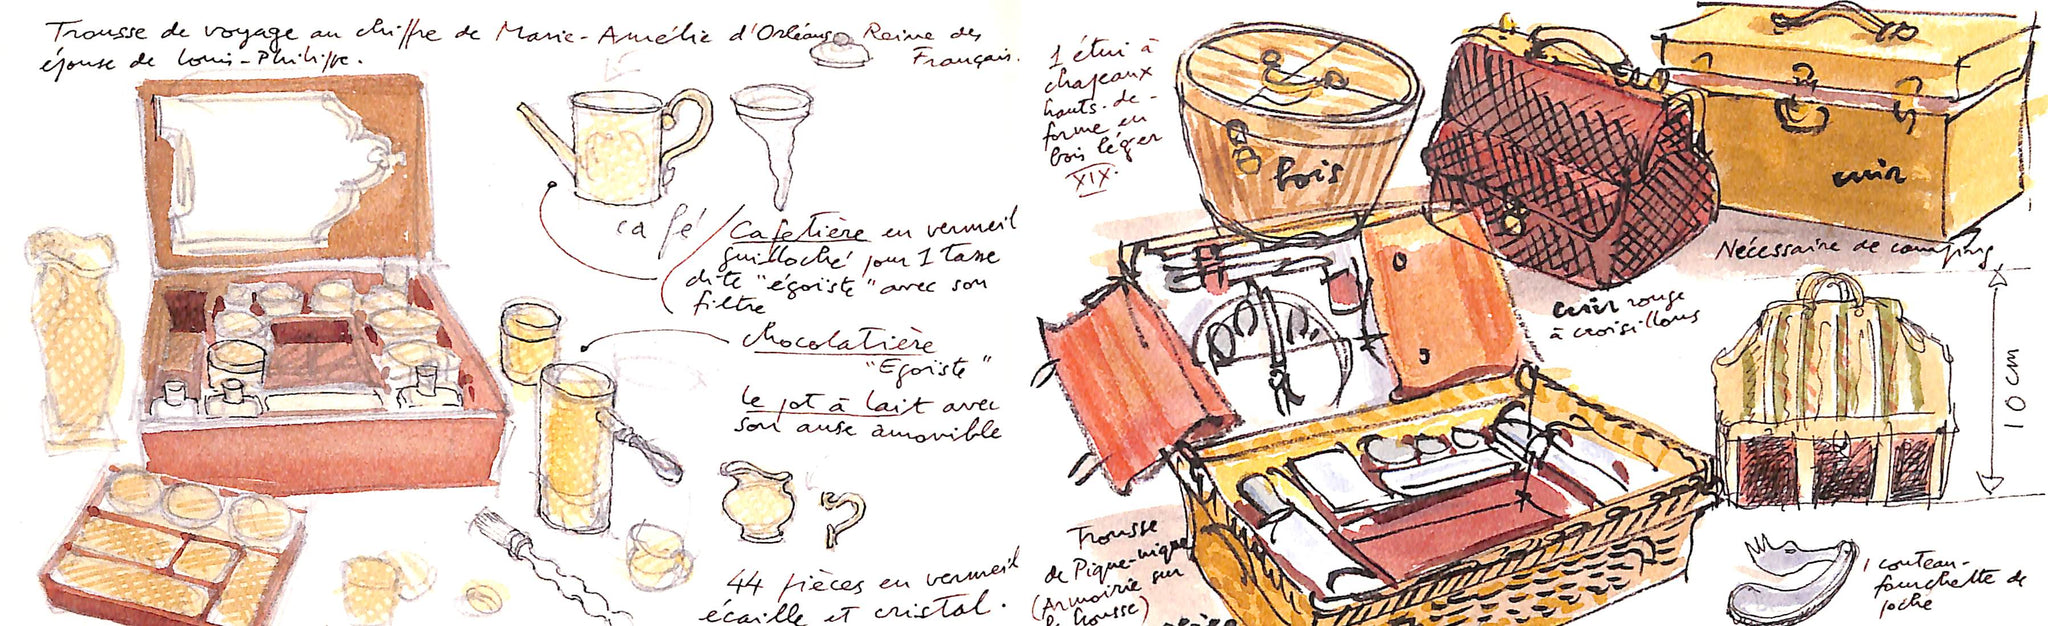 Trousse de voyage au chiffre de Marie-Amélie d'Orléans Reine des
épouse de Louis-Philippe. Français.
café
Cafetière en vermeil
guilloché pour 1 tasse
dite "égoïste" avec son
filtre
chocolatière
"Egoïste"
le pot à lait avec
son anse amovible
44 pièces en vermeil
écaille et cristal.
1 étui à
chapeaux
hauts-de-
forme en
bois léger
XIX.
bois
cuir
Nécessaire de camping
cuir rouge
à croisillons
10 cm
Trousse
de Pique-nique
(Armoirie sur
la trousse)
1 couteau-
fourchette de
poche